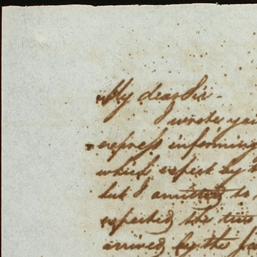 My dear Sir
wrote you
express informing
which expect by t
but I omitted to
expected the two
arrived by the